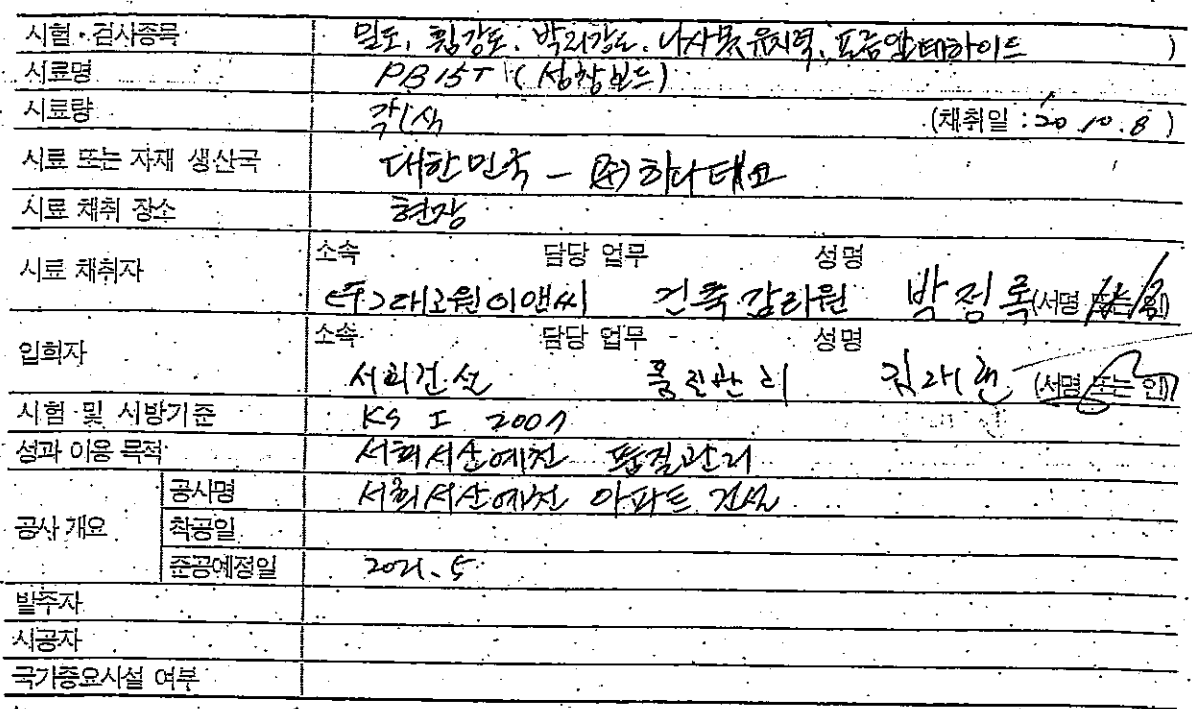 시험·검사종목 밀도, 휨강도, 박리강도, 나사못유지력, 포름알데하이드 )
시료명 PB 15T (성창보드)
시료량 각1식 (채취일 : 20.10.8 )
시료 또는 자재 생산국 대한민국 - (주)하나데코
시료 채취 장소 현장
소속 담당 업무 성명
시료 채취자 (주) 건축감리원 박정록 (서명 또는 인)
소속 담당 업무 성명
입회자 서희건설 품질관리 김재현 (서명 또는 인)
시험 및 시방기준 KS I 2007
성과 이용 목적 서희서산예천 품질관리
공사 개요 공사명 서희서산예천 아파트 건설
착공일
준공예정일 2021.5
발주자
시공자
국가중요시설 여부